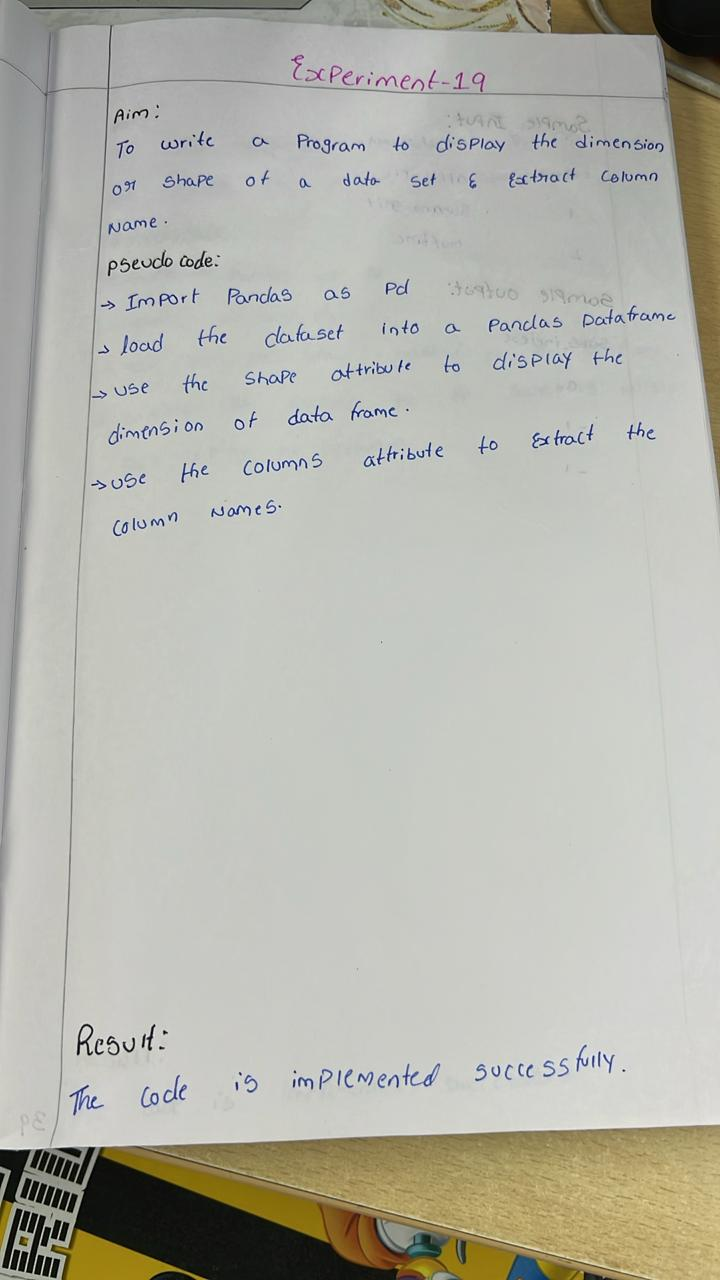 Experiment-19
Aim:
To write a Program to display the dimension
or shape of a data set & Extract column
Name.
Pseudo code:
→ Import Pandas as Pd
→ load the dataset into a Pandas Dataframe
→ use the shape attribute to display the
dimension of data frame.
→ use the columns attribute to Extract the
column Names.
Result:
The code is implemented successfully.